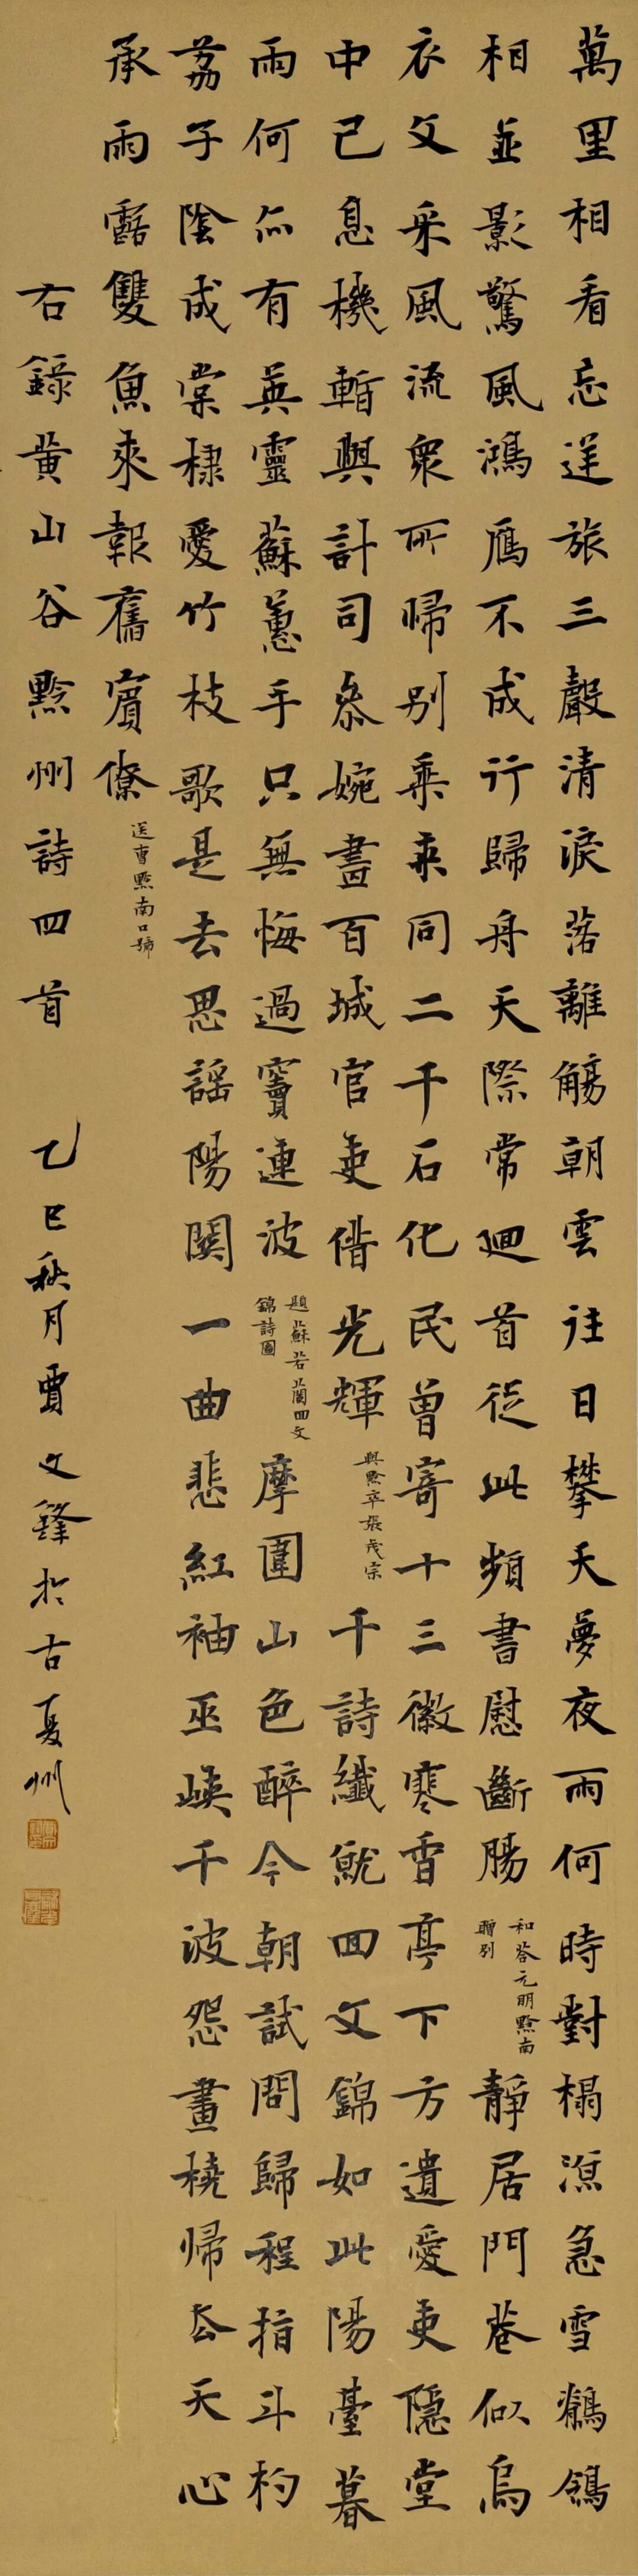 萬里相看忘逆旅三聲清淚落離觴朝雲往日攀天夢夜雨何時對榻涼急雪鶺鴒
相並影驚風鴻雁不成行歸舟天際常迴首從此頻書慰斷腸
和答元明黔南
贈別
靜居門巷似烏
衣文采風流衆所歸別乘來同二千石化民曾寄十三徽寒香亭下方遺愛吏隱堂
中已息機暫與計司參婉畫百城官吏借光輝
與黔卒張茂宗
千詩織就回文錦如此陽臺暮
雨何亦有英靈蘇蕙手只無悔過竇連波
題蘇若蘭回文
錦詩圖
摩圍山色醉今朝試問歸程指斗杓
荔子陰成棠棣愛竹枝歌是去思謠陽關一曲悲紅袖巫峽千波怨畫橈歸去天心
承雨露雙魚來報舊賓僚
送曹黔南口號
右錄黃山谷黔州詩四首
乙巳秋月賈文鋒於古夏州